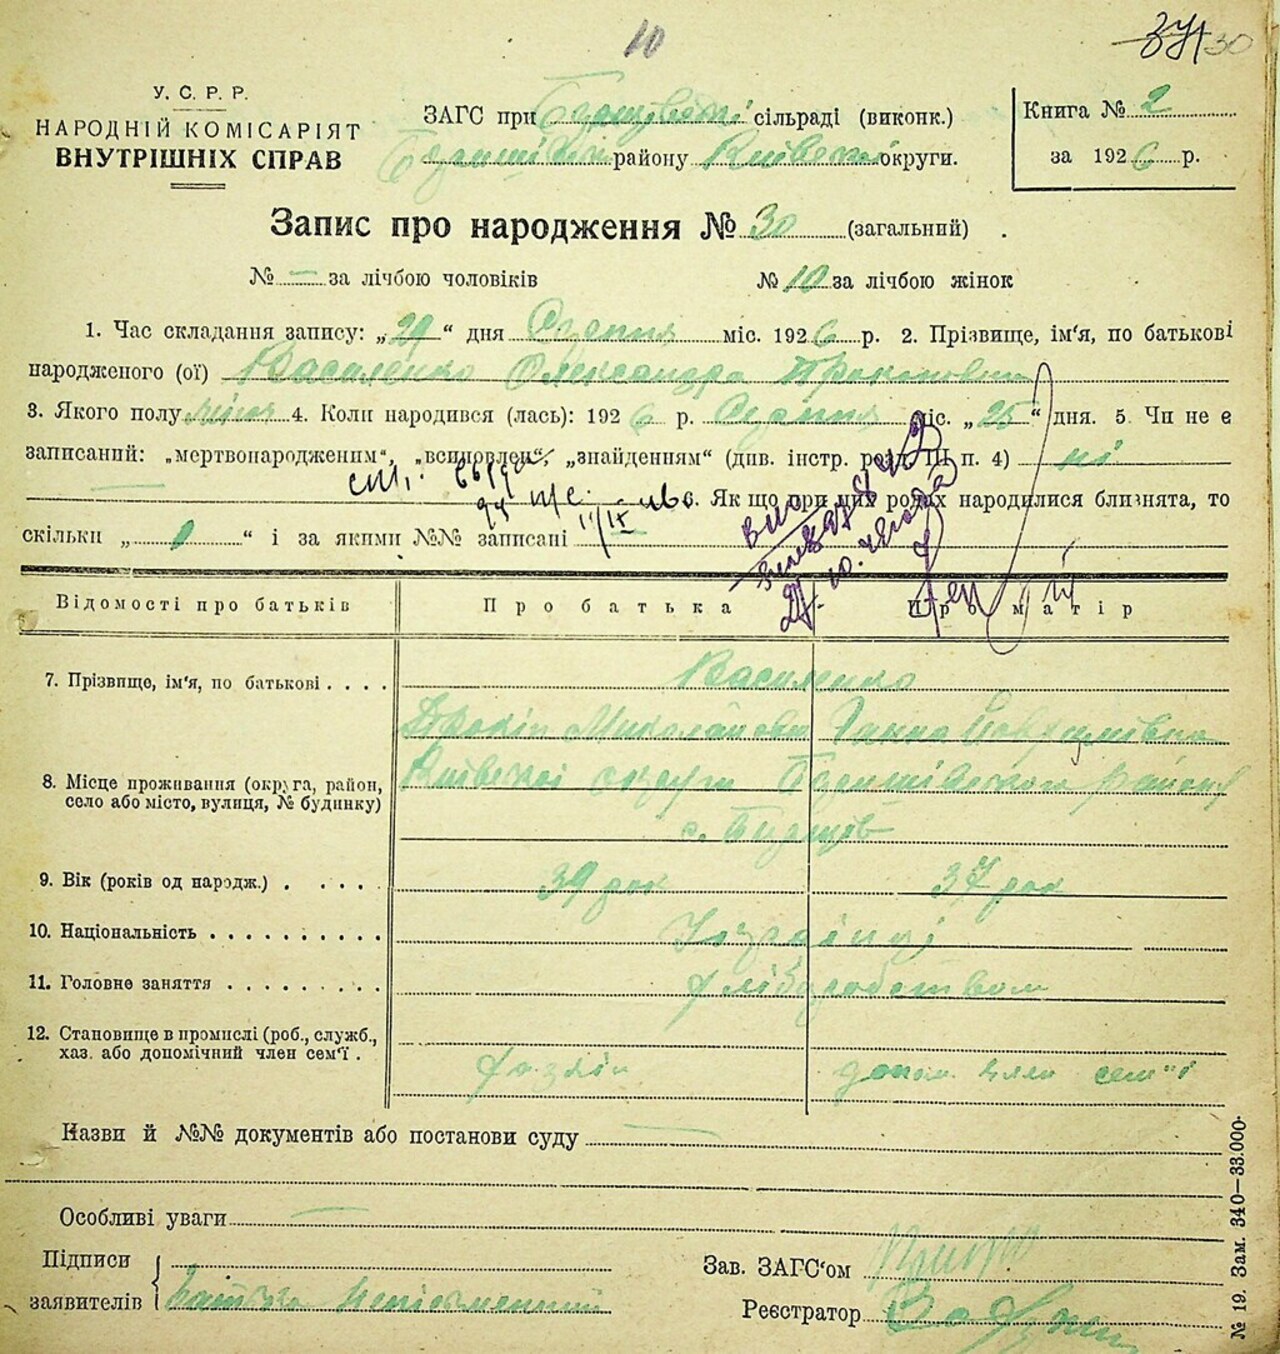 10
30
У. С. Р. Р.
НАРОДНІЙ КОМІСАРІЯТ
ВНУТРІШНІХ СПРАВ
ЗАГС при сільраді (виконк.)
району Київської округи.
Книга № 2
за 1926 р.
Запис про народження № 30 (загальний)
№ — за лічбою чоловіків № 10 за лічбою жінок
1. Час складання запису: „29“ дня Серпня міс. 1926 р. 2. Прізвище, ім'я, по батькові
народженого (ої) Василенко Олександра Прокіповна
3. Якого полу жіноч 4. Коли народився (лась): 1926 р. Серпня міс. „25“ дня. 5. Чи не є
записаний: „мертвонародженим“, „всиновлен“, „знайденням“ (див. інстр. розд. III п. 4) ні
— 6. Як що при цих родах народилися близнята, то
скільки „ “ і за якими №№ записані —
Відомості про батьків Про батька Про матір
7. Прізвище, ім'я, по батькові . . . . Василенко
Прокіп Миколайович Ганна
8. Місце проживання (округа, район,
село або місто, вулиця, № будинку)
Київської округи району
с.
9. Вік (років од народж.) . . . . . 39 рок 37 рок
10. Національність . . . . . . . . . . Українці
11. Головне заняття . . . . . . . . . хліборобством
12. Становище в промислі (роб., служб.,
хаз. або допомічний член сем'ї .
хазяїн допом. член сем'ї
Назви й №№ документів або постанови суду —
Особливі уваги —
Підписи
заявителів батько Неписьменний
Зав. ЗАГС'ом
Реєстратор
№ 19. Зам. 340—33.000·